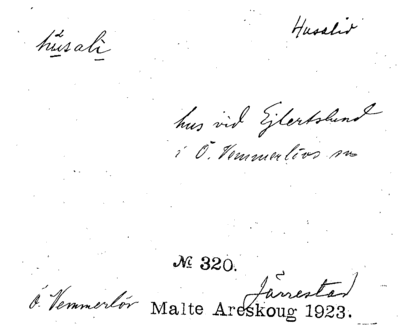 Husalid
hu̱sali̱
hus vid Ejlertslund
i Ö. Vemmerlövs sn
№ 320.
Järrestad
Ö. Vemmerlöv Malte Areskoug 1923.